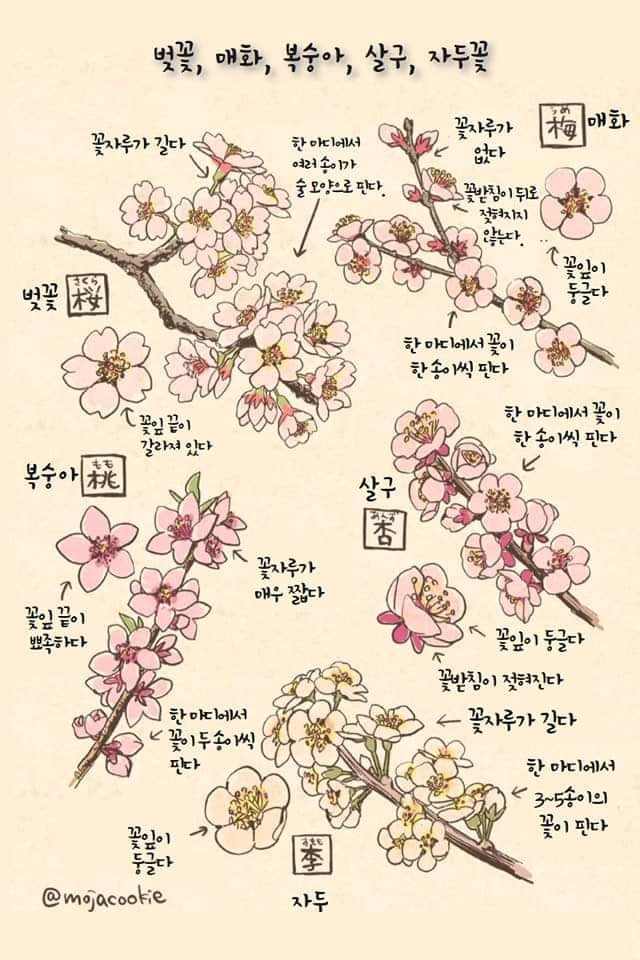 벚꽃, 매화, 복숭아, 살구, 자두꽃
꽃자루가 길다
한 마디에서
여러 송이가
술 모양으로 핀다.
벚꽃
さくら
桜
꽃잎 끝이
갈라져 있다
うめ
梅
매화
꽃자루가
없다
꽃받침이 뒤로
젖혀지지
않는다.
꽃잎이
둥글다
한 마디에서 꽃이
한 송이씩 핀다
복숭아
もも
桃
꽃잎 끝이
뾰족하다
꽃자루가
매우 짧다
한 마디에서
꽃이 두 송이씩
핀다
살구
あんず
杏
한 마디에서 꽃이
한 송이씩 핀다
꽃잎이 둥글다
꽃받침이 젖혀진다
꽃자루가 길다
한 마디에서
3~5송이의
꽃이 핀다
꽃잎이
둥글다
すもも
李
자두
@mojacookie